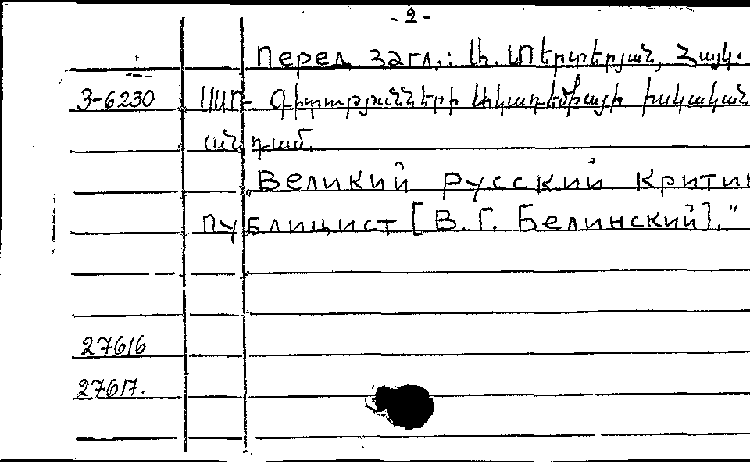 - 2 -
Перед загл.: Ա. Տերտերյան, Հայկ.
3-6230 ՍՍՌ Գիտությունների Ակադեմիայի իսկական
անդամ.
„Великий русский крити
публицист [В. Г. Белинский]."
27616
27617.